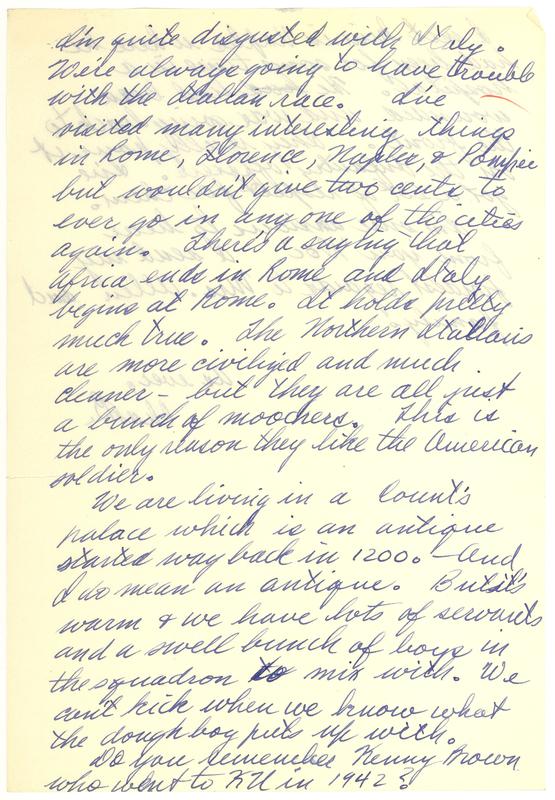 I'm quite disgusted with Italy.
We're always going to have trouble
with the Itallan race. I've
visited many interesting things
in Rome, Florence, Naples, & Pompeii
but wouldn't give two cents to
ever go in any one of the cities
again. There's a saying that
Africa ends in Rome and Italy
begins at Rome. It holds pretty
much true. The Northern Itallans
are more civilized and much
cleaner - but they are all just
a bunch of moochers. This is
the only reason they like the American
soldier.
We are living in a Count's
palace which is an antique
started way back in 1200. - And
I do mean an antique. But it's
warm & we have lots of servants
and a swell bunch of boys in
the squadron to mix with. We
can't kick when we know what
the doughboy puts up with.
Do you remember Kenny Brown
who went to KU in 1942?